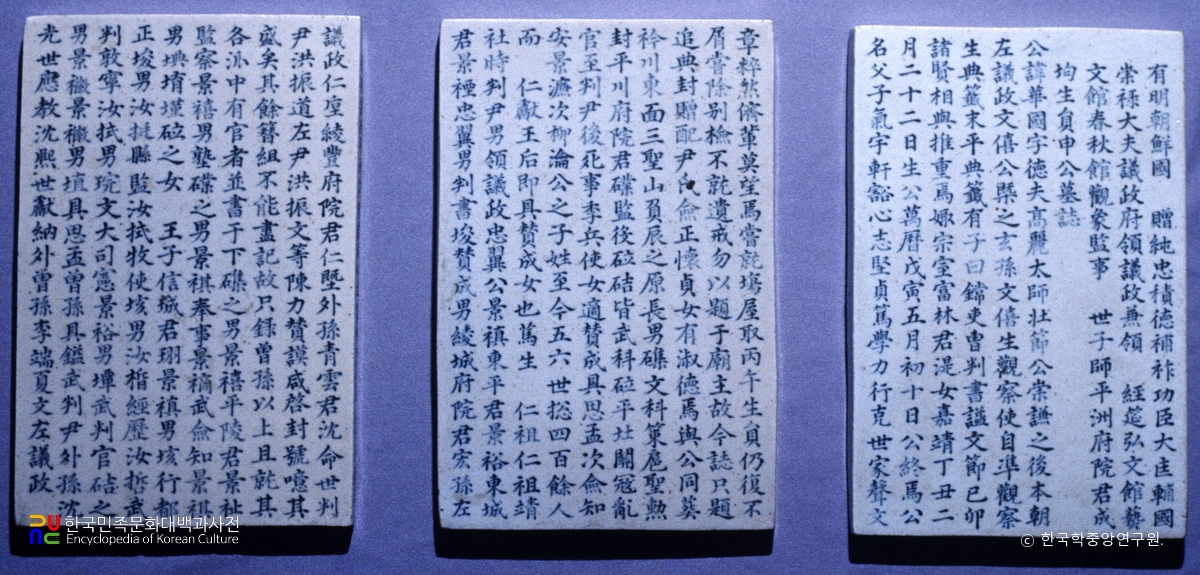 有明朝鮮國 贈純忠積德補祚功臣大匡輔國
崇祿大夫議政府領議政兼領 經筵弘文館藝
文館春秋館觀象監事 世子師平洲府院君成
均生員申公墓誌
公諱華國字德夫高麗太師壯節公崇謙之後本朝
左議政文僖公槩之玄孫文僖生觀察使自準觀察
生典籤末平典籤有子曰鏛吏曹判書謚文節己卯
諸賢相與推重焉娵宗室富林君湜女嘉靖丁丑二
月二十二日生公萬曆戊寅五月初十日公終焉公
名父子氣宇軒豁心志堅貞篤學力行克世家聲文
章粹然儕輩莫望焉嘗就塲屋取丙午生員仍復不
屑嘗除別檢不就遺戒勿以題于廟主故今誌只題
追典封贈配尹 僉正懷貞女有淑德焉與公同葬
衿川東面三聖山負辰之原長男磼文科策扈聖勲
封平川府院君礏監役砬硈皆武科砬平 開冠亂
官至判尹後死事季兵使女適贊成具思孟次僉知
安景濂次柳瀹公之子姓至今五六世揔四百餘人
而 仁獻王后即具贊成女也篤生 仁祖仁祖靖
社時判尹男領議政忠翼公景禛東平君景裕東城
君景禋忠翼男判書埈贊成男綾城府院君宏孫左
議政仁垕綾豐府院君仁墍外孫青雲君沈命世判
尹洪振道左尹洪振文等陳力贊謨咸啓封號噫其
盛矣其餘簪組不能盡記故只錄曽孫以上且就其
各派中有官者並書于下磼之男景禧平陵君景祉
監察景禧男塾礏之男景祺奉事景 武僉知景祺
男 堉墐砬之女 王子信城君珝景禛男垓行都
正埈男汝挺縣監汝拭牧使垓男汝楷經歷汝哲武
判敦寧汝拭男琓文大司憲景裕男墰武判官硈之
男景 景 男塡具思孟曽孫具鎰武判尹外孫
光世應教沈熙世獻納外曽孫李端夏文左議政
한국민족문화대백과사전
Encyclopedia of Korean Culture
ⓒ 한국학중앙연구원.